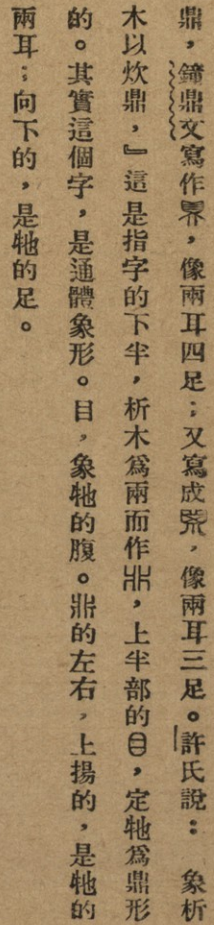 鼎，鐘鼎文寫作，像兩耳四足；又寫成，像兩耳三足。許氏說：象析
木以炊鼎，』這是指字的下半，析木爲兩而作，上半部的目，定牠爲鼎形
的。其實這個字，是通體象形。目，象牠的腹。的左右，上揚的，是牠的
兩耳；向下的，是牠的足。